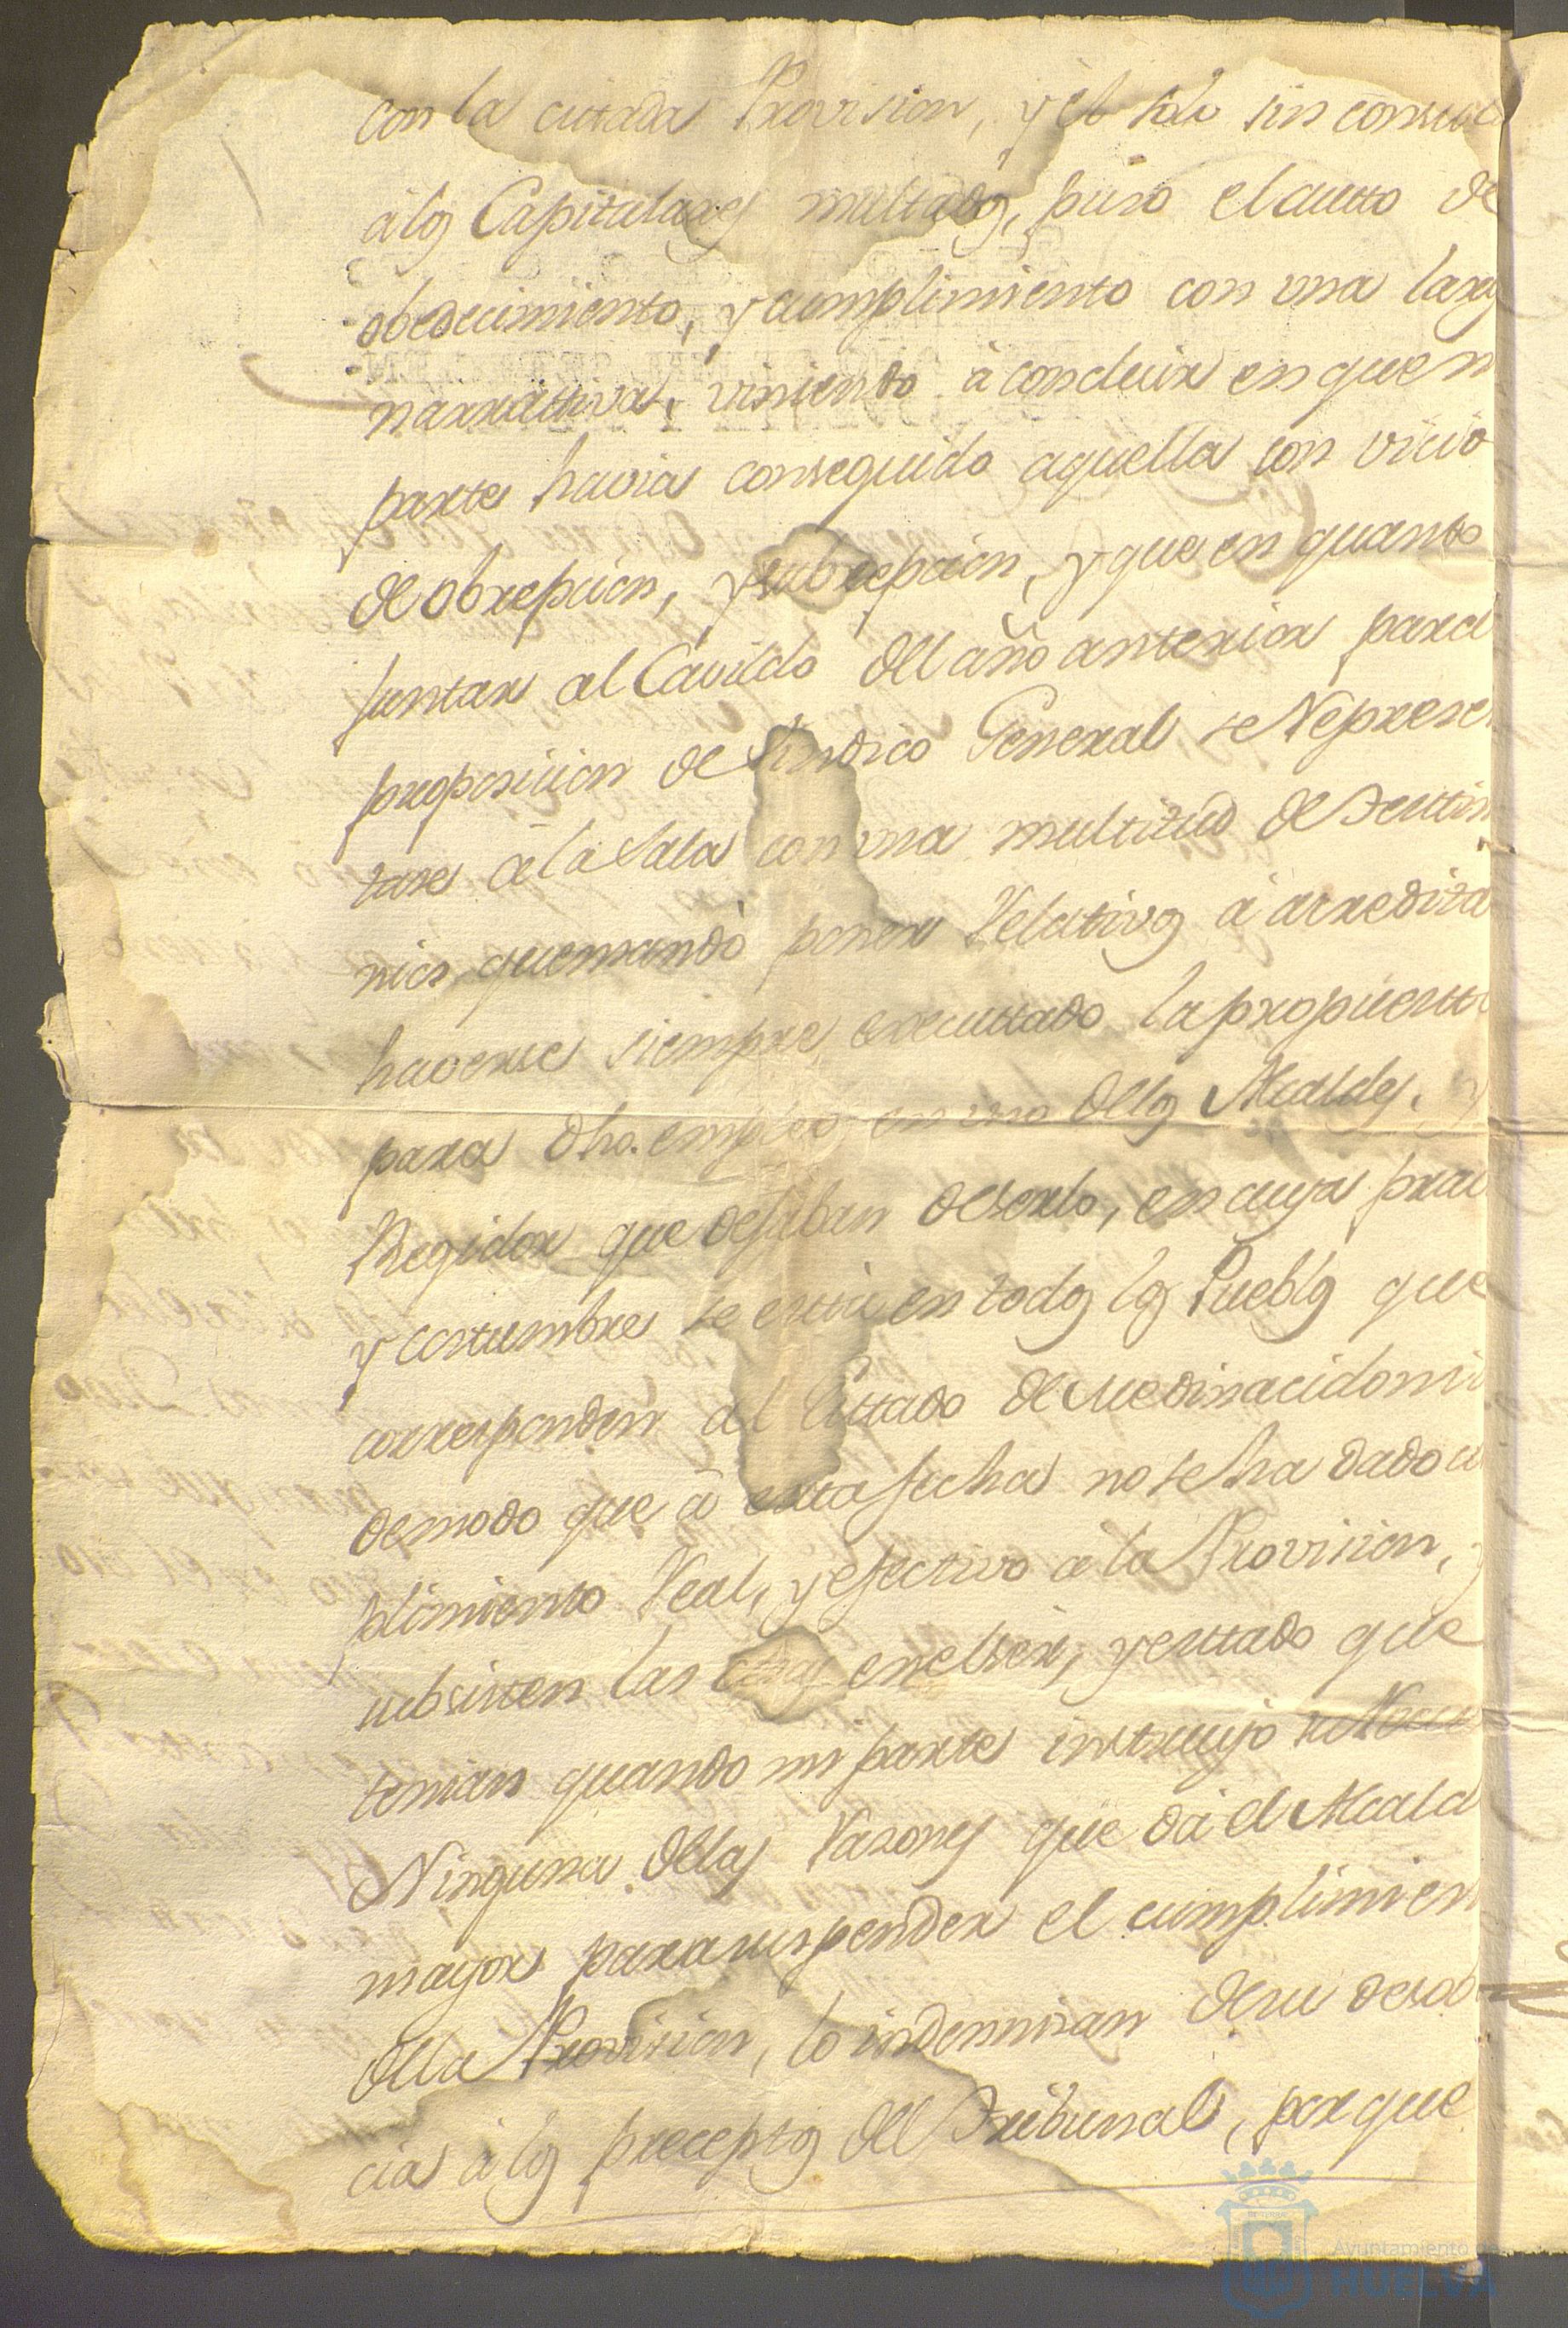 con la citada Provision, y él solo sin consul
à los Capitulares multados, puso el autto de
obedecimiento, y cumplimiento con una larg
narrattiva, viniendo à concluir en que m
parte havia conseguido aquella con vicio
de obrepcion, y subrepcion, y que en quanto
juntar al Cavildo del año anterior para l
proposicion de Sindico General se Represen
tase à la Sala con una multitud de Testtim
nios que mandò poner Relativos à acredita
haverse siempre executtado la propuestta
para dho. empleo en uno de los Alcaldes, y
Regidor que dejaban de serlo, en cuya prac
y costumbre se esttà en todos los Pueblos que
corresponden al Esttado de Medinacidoni
de modo que à estta fecha no se ha dado cu
plimiento Real, y efectivo à la Provision, y
subsisten las cosas en el ser, y esttado que
tenian quando mi parte instruyó su Recu
Ninguna de las Razones que dá el Alcald
mayor para suspender el cumplimien
de la Provision, lo indemnisan de su desob
cia à los preceptos del Tribunal, porque
Ayuntamiento de
HUELVA